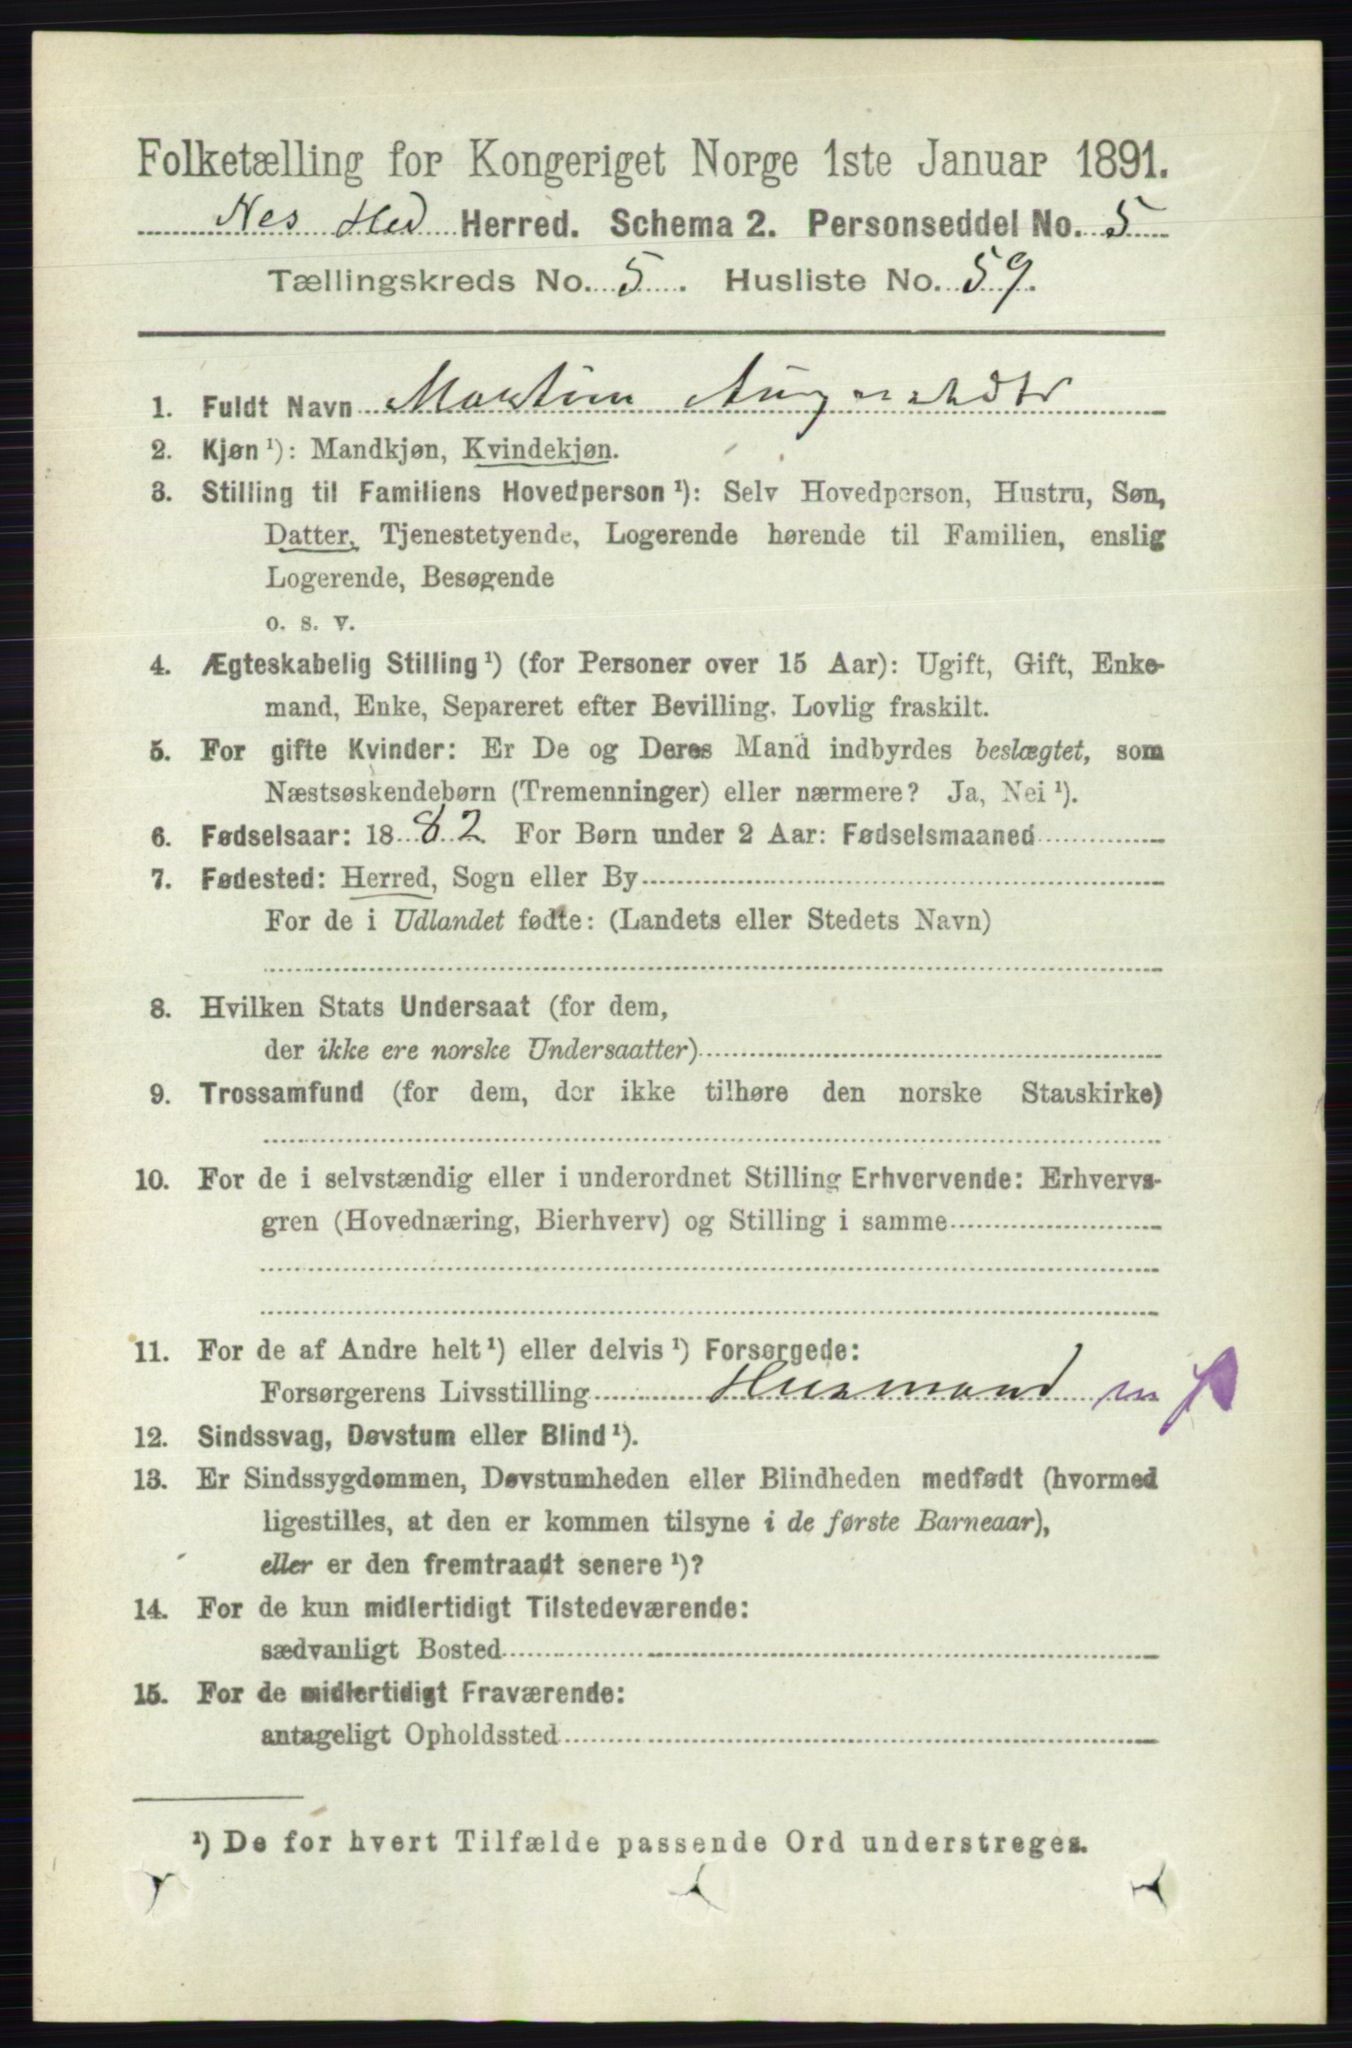 Folketælling for Kongeriget Norge 1ste Januar 1891.
Nes Hed Herred. Schema 2. Personseddel No. 5
Tællingskreds No. 5. Husliste No. 59.
1. Fuldt Navn
2. Kjøn ¹): Mandkjøn, Kvindekjøn.
3. Stilling til Familiens Hovedperson ¹): Selv Hovedperson, Hustru, Søn,
Datter, Tjenestetyende, Logerende hørende til Familien, enslig
Logerende, Besøgende
o. s. v.
4. Ægteskabelig Stilling ¹) (for Personer over 15 Aar): Ugift, Gift, Enke-
mand, Enke, Separeret efter Bevilling. Lovlig fraskilt.
5. For gifte Kvinder: Er De og Deres Mand indbyrdes beslægtet, som
Næstsøskendebørn (Tremenninger) eller nærmere? Ja, Nei ¹).
6. Fødselsaar: 1882 For Børn under 2 Aar: Fødselsmaaned
7. Fødested: Herred, Sogn eller By
For de i Udlandet fødte: (Landets eller Stedets Navn)
8. Hvilken Stats Undersaat (for dem,
der ikke ere norske Undersaatter)
9. Trossamfund (for dem, der ikke tilhøre den norske Statskirke)
10. For de i selvstændig eller i underordnet Stilling Erhvervende: Erhvervs-
gren (Hovednæring, Bierhverv) og Stilling i samme
11. For de af Andre helt ¹) eller delvis ¹) Forsørgede:
Forsørgerens Livsstilling Husmand m
12. Sindssvag, Døvstum eller Blind ¹).
13. Er Sindssygdommen, Døvstumheden eller Blindheden medfødt (hvormed
ligestilles, at den er kommen tilsyne i de første Barneaar),
eller er den fremtraadt senere ¹)?
14. For de kun midlertidigt Tilstedeværende:
sædvanligt Bosted
15. For de midlertidigt Fraværende:
antageligt Opholdssted
¹) De for hvert Tilfælde passende Ord understreges.